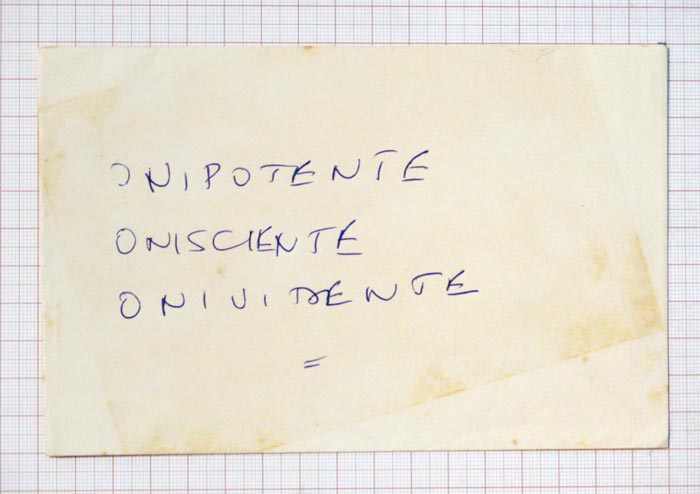 ONIPOTENTE
ONISCIENTE
ONIVIDENTE
=